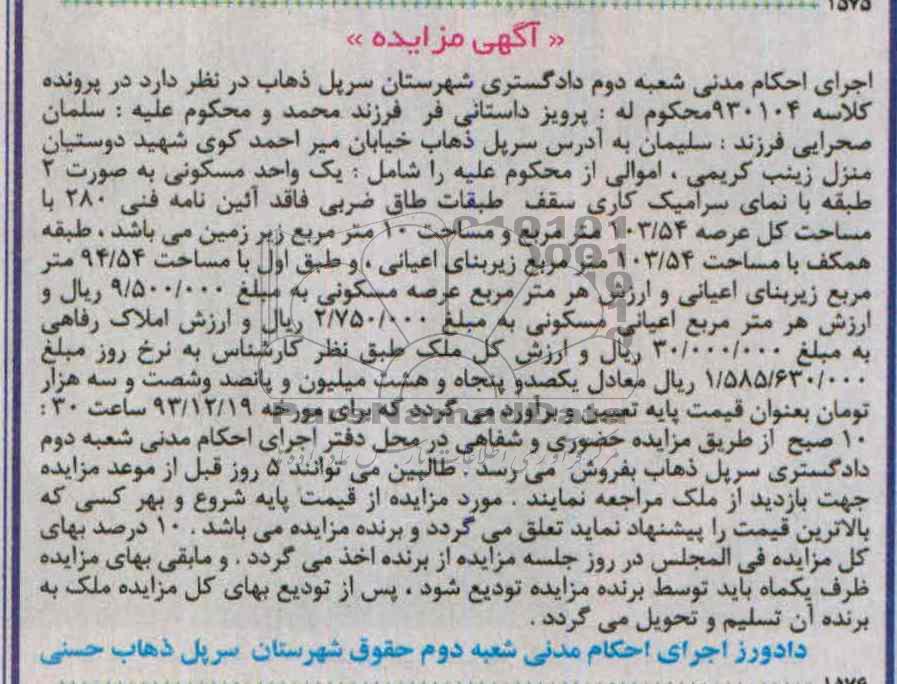 ۱۵۷۵
« آگهی مزایده »
اجرای احکام مدنی شعبه دوم دادگستری شهرستان سرپل ذهاب در نظر دارد در پرونده
کلاسه ۹۳۰۱۰۴محکوم له : پرویز داستانی فر فرزند محمد و محکوم علیه : سلمان
صحرایی فرزند : سلیمان به آدرس سرپل ذهاب خیابان میر احمد کوی شهید دوستیان
منزل زینب کریمی ، اموالی از محکوم علیه را شامل : یک واحد مسکونی به صورت ۲
طبقه با نمای سرامیک کاری سقف طبقات طاق ضربی فاقد آئین نامه فنی ۲۸۰ با
مساحت کل عرصه ۱۰۳/۵۴ متر مربع و مساحت ۱۰ متر مربع زیر زمین می باشد ، طبقه
همکف با مساحت ۱۰۳/۵۴ متر مربع زیربنای اعیانی ، و طبق اول با مساحت ۹۴/۵۴ متر
مربع زیربنای اعیانی و ارزش هر متر مربع عرصه مسکونی به مبلغ ۹/۵۰۰/۰۰۰ ریال و
ارزش هر متر مربع اعیانی مسکونی به مبلغ ۲/۷۵۰/۰۰۰ ریال و ارزش املاک رفاهی
به مبلغ ۳۰/۰۰۰/۰۰۰ ریال و ارزش کل ملک طبق نظر کارشناس به نرخ روز مبلغ
۱/۵۸۵/۶۳۰/۰۰۰ ریال معادل یکصدو پنجاه و هشت میلیون و پانصد وشصت و سه هزار
تومان بعنوان قیمت پایه تعیین و برآورد می گردد که برای مورخه ۹۳/۱۲/۱۹ ساعت ۳۰ :
۱۰ صبح از طریق مزایده حضوری و شفاهی در محل دفتر اجرای احکام مدنی شعبه دوم
دادگستری سرپل ذهاب بفروش می رسد . طالبین می توانند ۵ روز قبل از موعد مزایده
جهت بازدید از ملک مراجعه نمایند . مورد مزایده از قیمت پایه شروع و بهر کسی که
بالاترین قیمت را پیشنهاد نماید تعلق می گردد و برنده مزایده می باشد . ۱۰ درصد بهای
کل مزایده فی المجلس در روز جلسه مزایده از برنده اخذ می گردد . و مابقی بهای مزایده
ظرف یکماه باید توسط برنده مزایده تودیع شود ، پس از تودیع بهای کل مزایده ملک به
برنده آن تسلیم و تحویل می گردد .
دادورز اجرای احکام مدنی شعبه دوم حقوق شهرستان سرپل ذهاب حسنی
۱۵۷۶